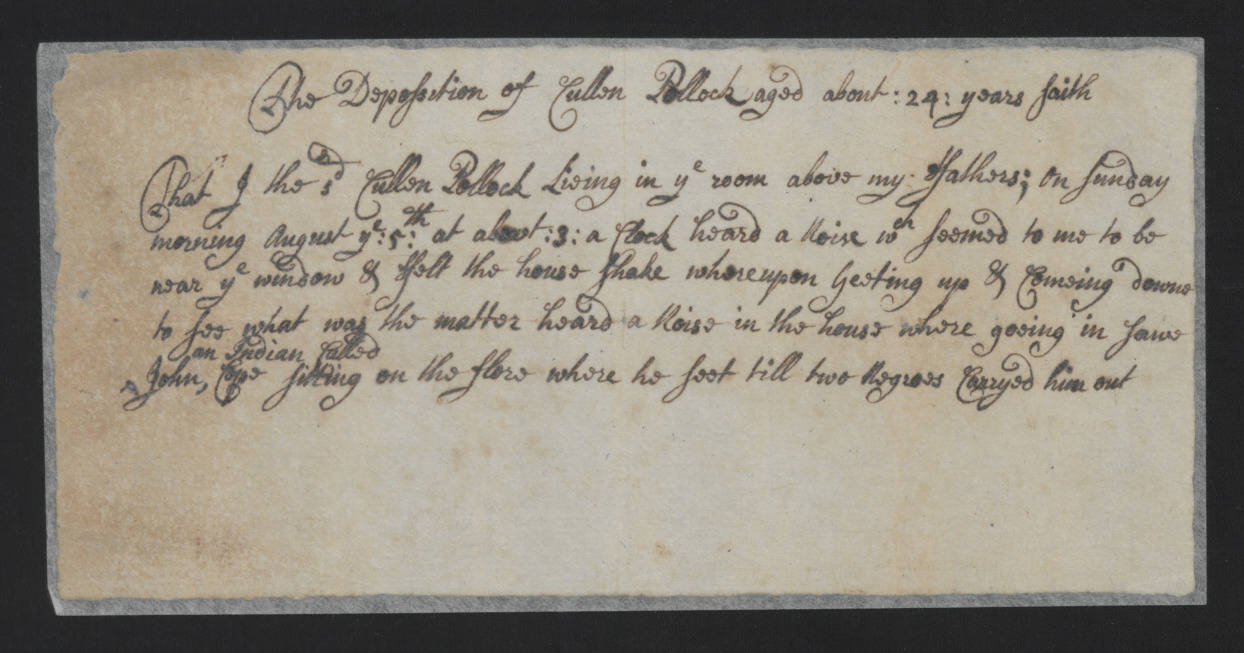 The Deposition of Cullen Pollock aged about :24: years saith
That I the sd Cullen Pollock Lieing in ye room above my ffathers; on sunday
morning August ye:5:th at about :3: a Clock heard a Noise wch seemed to me to be
near ye window & ffelt the house shake whereupon Geeting up & Comeing downe
to see what was the matter heard a Noise in the house where goeing in sawe
an Indian Called
John, Cope sitting on the flore where he seet till two Negroes Carryed him out